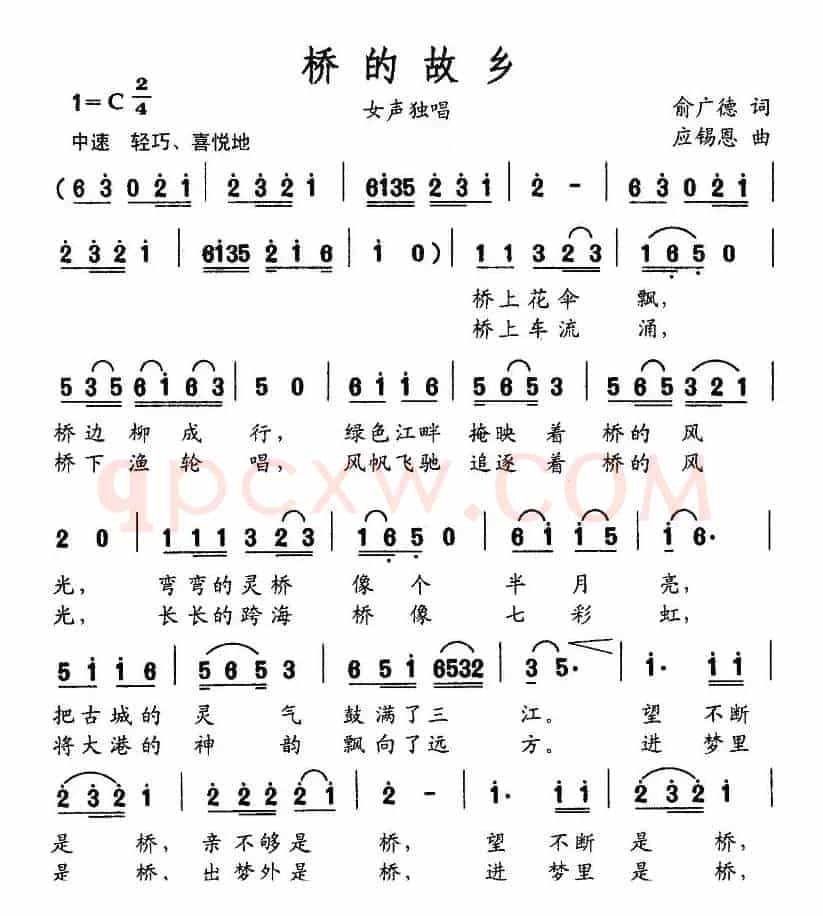 桥的故乡
1=C 2/4
女声独唱
俞广德 词
中速 轻巧、喜悦地
应锡恩 曲
( 6 3 0 2 1 | 2 3 2 1 | 6 1 3 5 2 3 1 | 2 - | 6 3 0 2 1 |
2 3 2 1 | 6 1 3 5 2 1 6 | 1 0 ) | 1 1 3 2 3 | 1 6 5 0 |
桥上花伞 飘，
桥上车流 涌，
5 3 5 6 1 6 3 | 5 0 | 6 1 1 6 | 5 6 5 3 | 5 6 5 3 2 1 |
桥边 柳 成 行， 绿色江畔 掩映 着 桥的 风
桥下 渔 轮 唱， 风帆飞驰 追逐 着 桥的 风
qpcxw.com
2 0 | 1 1 1 3 2 3 | 1 6 5 0 | 6 1 1 5 | 1 6· |
光， 弯弯的灵桥 像 个 半 月 亮，
光， 长长的跨海 桥 像 七 彩 虹，
5 1 1 6 | 5 6 5 3 | 6 5 1 6532 | 3 5· | 1· 1 1 |
把古城的 灵 气 鼓满了三 江。 望 不断
将大港的 神 韵 飘向了远 方。 进 梦里
2 3 2 1 | 2 2 2 2 1 | 2 - | 1· 1 1 | 2 3 2 1 |
是 桥，亲不够是 桥， 望 不断 是 桥，
是 桥、出梦外是 桥， 进 梦里 是 桥，